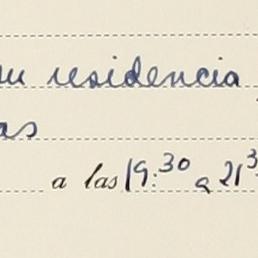 su residencia
as
a las 19:30 a 21³